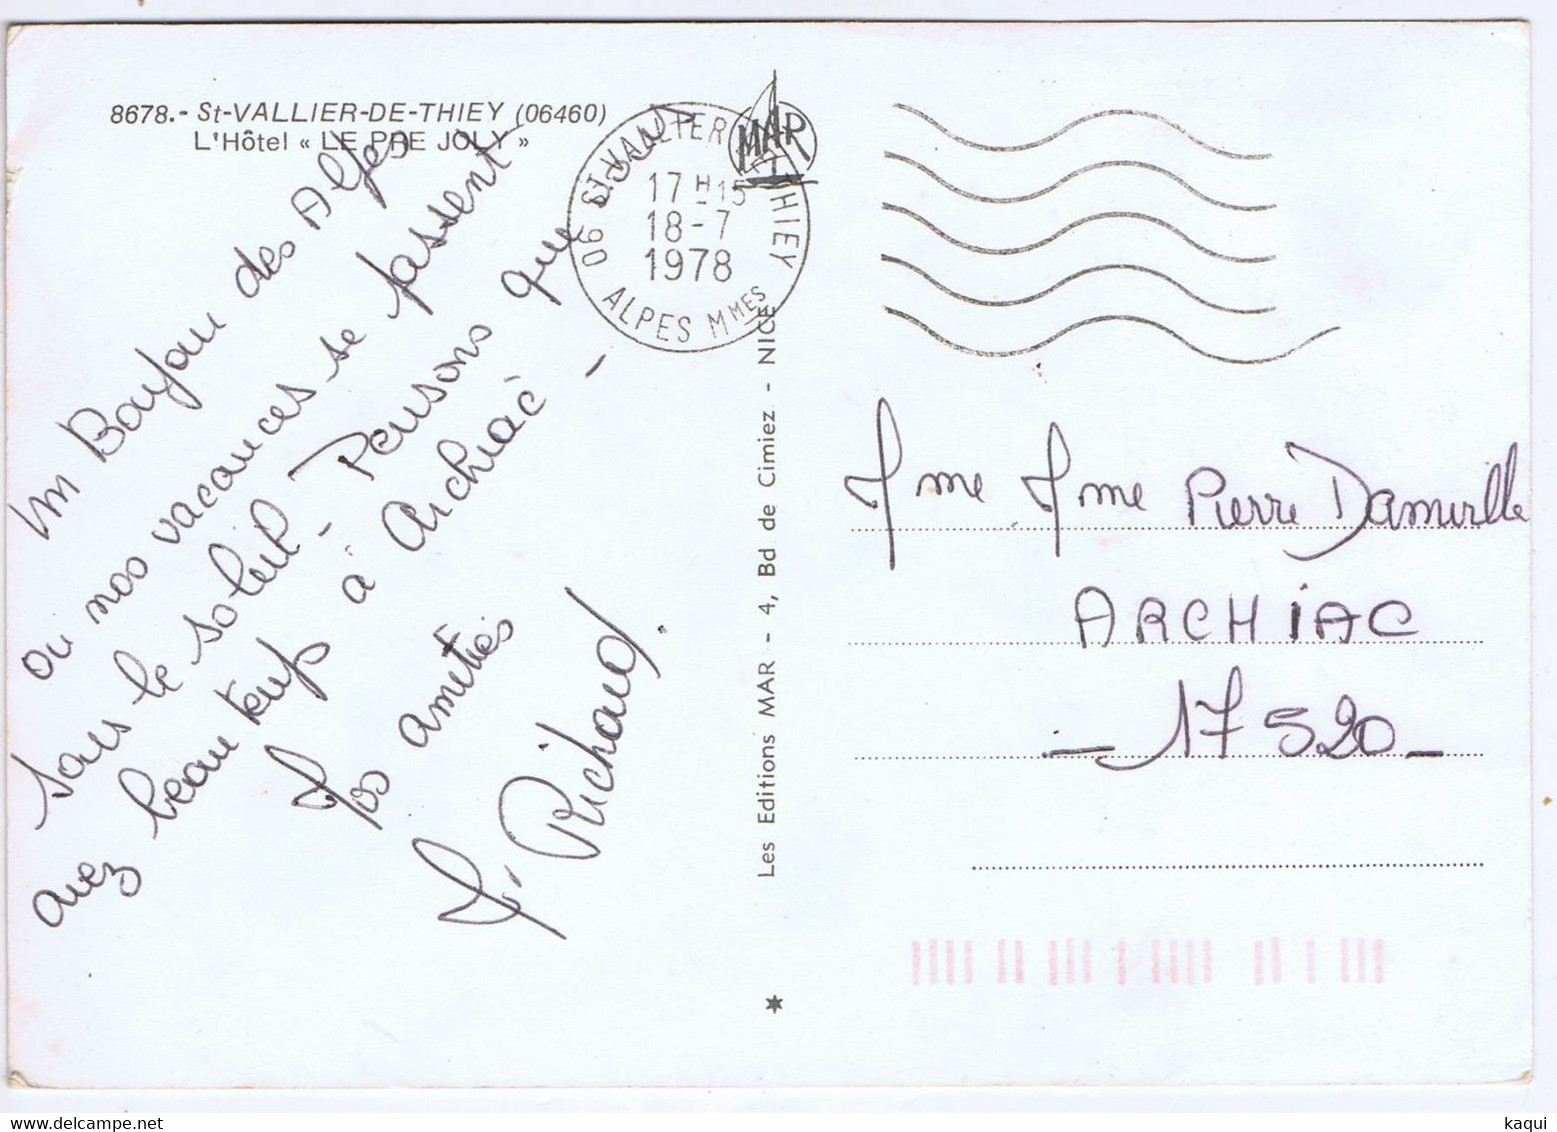 8678.- St-VALLIER-DE-THIEY (06460)
L'Hôtel « LE PRE JOLY »
Un Boujou des Alpes
où nos vacances se passent
sous le soleil - Pensons que vous
avez beau temps à Archiac -
Nos amitiés
Richaud.
06 ST VALLIER THIEY
17 H 15
18-7
1978
ALPES MMES
MAR
Les Editions MAR - 4, Bd de Cimiez - NICE
Mme Pierre
ARCHIAC
- 17 520 -
kaqui